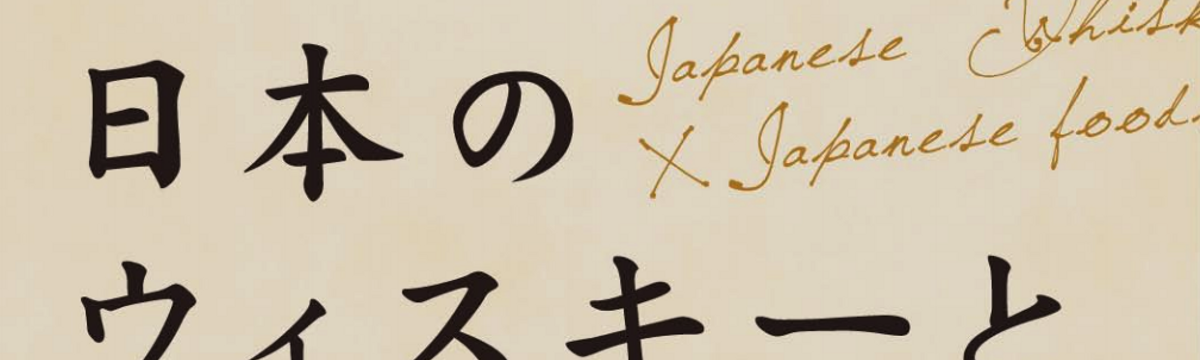 日本の
Japanese
× Japanese food.
ウィスキーと